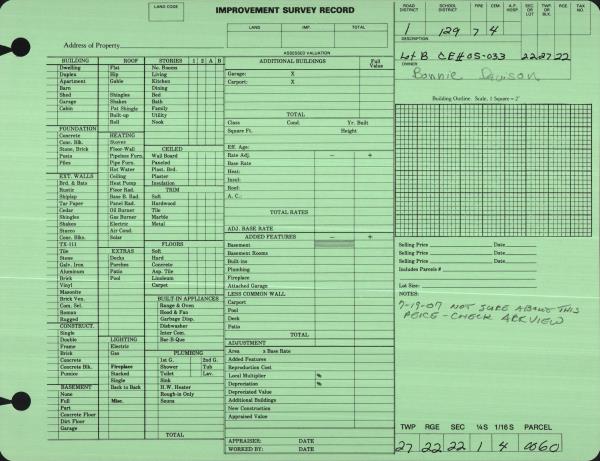 LAND CODE
IMPROVEMENT SURVEY RECORD
ROAD DISTRICT
SCHOOL DISTRICT
FIRE
CEM.
A.F. HOSP.
SEC. OR LOT
TWP. OR BLK.
RGE.
TAX NO.
1 129 7 4
DESCRIPTION
Lot B CE#05-033 22 27 22
OWNER
Bonnie Davison
LAND IMP. TOTAL
Address of Property
ASSESSED VALUATION
BUILDING ROOF STORIES 1 2 A B
Dwelling Flat No. Rooms
Duplex Hip Living
Apartment Gable Kitchen
Barn Dining
Shed Shingles Bed
Garage Shakes Bath
Cabin Pat Shingle Family
Built-up Utility
Roll Nook
FOUNDATION
Concrete HEATING
Conc. Blk. Stoves CEILED
Stone, Brick Floor-Wall Wall Board
Posts Pipeless Furn. Paneled
Piles Pipe Furn. Plast. Brd.
Hot Water Plaster
EXT. WALLS Ceiling
Brd. & Bats Heat Pump Insulation
Rustic Floor Rad. TRIM
Shiplap Base B. Rad. Soft
Tar Paper Panel Rad. Hardwood
Cedar Oil Burner Tile
Shingles Gas Burner Marble
Shakes Electric Metal
Stucco Air Cond.
Conc. Blks. Solar
TX-111 FLOORS
Tile EXTRAS Soft
Stone Decks Hard
Galv. Iron Porches Concrete
Aluminum Patio Asp. Tile
Brick Pool Linoleum
Vinyl Carpet
Masonite
Brick Ven. BUILT-IN APPLIANCES
Com. Sel. Range & Oven
Roman Hood & Fan
Rugged Garbage Disp.
CONSTRUCT. Dishwasher
Single Inter Com.
Double LIGHTING Bar-B-Que
Frame Electric
Brick Gas PLUMBING
Concrete 1st G. 2nd G.
Concrete Blk. Fireplace Shower Tub
Pumice Stacked Toilet Lav.
Single Sink
BASEMENT Back to Back H.W. Heater
None Rough-in Only
Full Misc. Sauna
Part
Concrete Floor
Dirt Floor
Garage
TOTAL
ADDITIONAL BUILDINGS Full Value
Garage: X
Carport: X
TOTAL
Class Cond. Yr. Built
Square Ft. Height
Eff. Age:
Rate Adj. - +
Base Rate
Heat:
Insul:
Roof:
A. C.:
TOTAL RATES
ADJ. BASE RATE
ADDED FEATURES - +
Basement
Basement Rooms
Built-ins
Plumbing
Fireplace
Attached Garage
LESS COMMON WALL
Carport
Pool
Deck
Patio
TOTAL
ADJUSTMENT
Area x Base Rate
Added Features
Reproduction Cost
Local Multiplier %
Depreciation %
Depreciated Value
Additional Buildings
New Construction
Appraised Value
APPRAISER: DATE
WORKED BY: DATE
Building Outline Scale, 1 Square = 2'
Selling Price Date
Selling Price Date
Selling Price Date
Includes Parcels #
Lot Size:
NOTES:
7-19-07 NOT SURE ABOUT THIS
PEICE - CHECK ARKVIEW
TWP RGE SEC ¼S 1/16 S PARCEL
27 22 22 1 4 0060